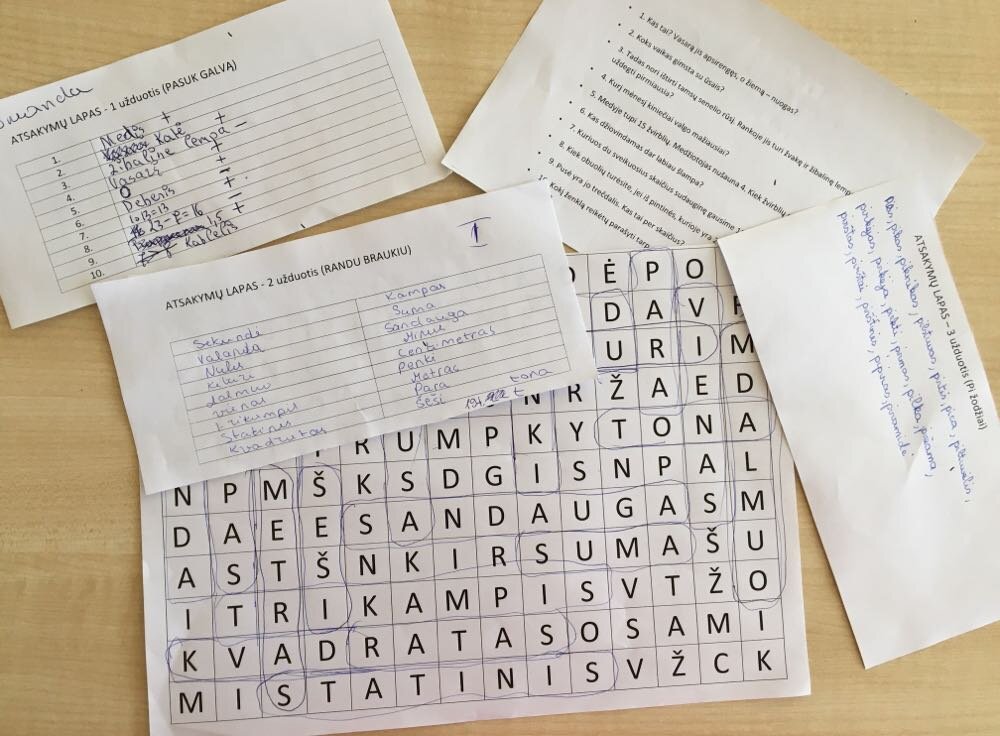 ATSAKYMŲ LAPAS - 1 užduotis (PASUK GALVĄ)
1. Medis +
2. Katė +
3. Žibalinę lempą –
4. Vasarį +
5. 0 –
6. Debesis +
7. 10+3=13 –
8. 23-7=16
9. 1,5 +
10. Kablelis
1. Kas tai? Vasarą jis apsirengęs, o žiemą – nuogas?
2. Koks vaikas gimsta su ūsais?
3. Tadas nori ištirti tamsų senelio rūsį. Rankoje jis turi žvakę ir žibalinę lemp
uždegti pirmiausia?
4. Kurį mėnesį kiniečiai valgo mažiausiai?
5. Medyje tupi 15 žvirblių. Medžiotojas nušauna 4. Kiek žvirblių
6. Kas džiovindamas dar labiau šlampa?
7. Kuriuos du sveikuosius skaičius sudauginę gausime 1
8. Kiek obuolių turėsite, jei iš pintinės, kurioje yra
9. Pusė yra jo trečdalis. Kas tai per skaičius?
Kokį ženklą reikėtų parašyti tarp
ATSAKYMŲ LAPAS - 2 užduotis (RANDU BRAUKIU)
I
Sekundė Kampas
Valanda Suma
Nulis Sandauga
Keturi Minus
Dalmuo Centimetras
Vienas Penki
Trikampis Metras
Statinis Para
Kvadratas Šeši
tona
ATSAKYMŲ LAPAS – 3 užduotis (Pi žodžiai)
piktas, pirštai, pirštinės, pipiras, piramidė
pinigas, pieva, pilti, pirmas, pilka, pižama,
pilis, pikas, piknikas, pieštukas, pietūs, pica,
Ė P O
D A V
U R I M
N R Ž A E D
R U M P K Y T O N A
N P M Š K S D G I S N P A L
D A E E S A N D A U G A S M
A S T Š N K I R S U M A Š U
I T R I K A M P I S V T Ž O
K V A D R A T A S O S A M I
M I S T A T I N I S V Ž C K